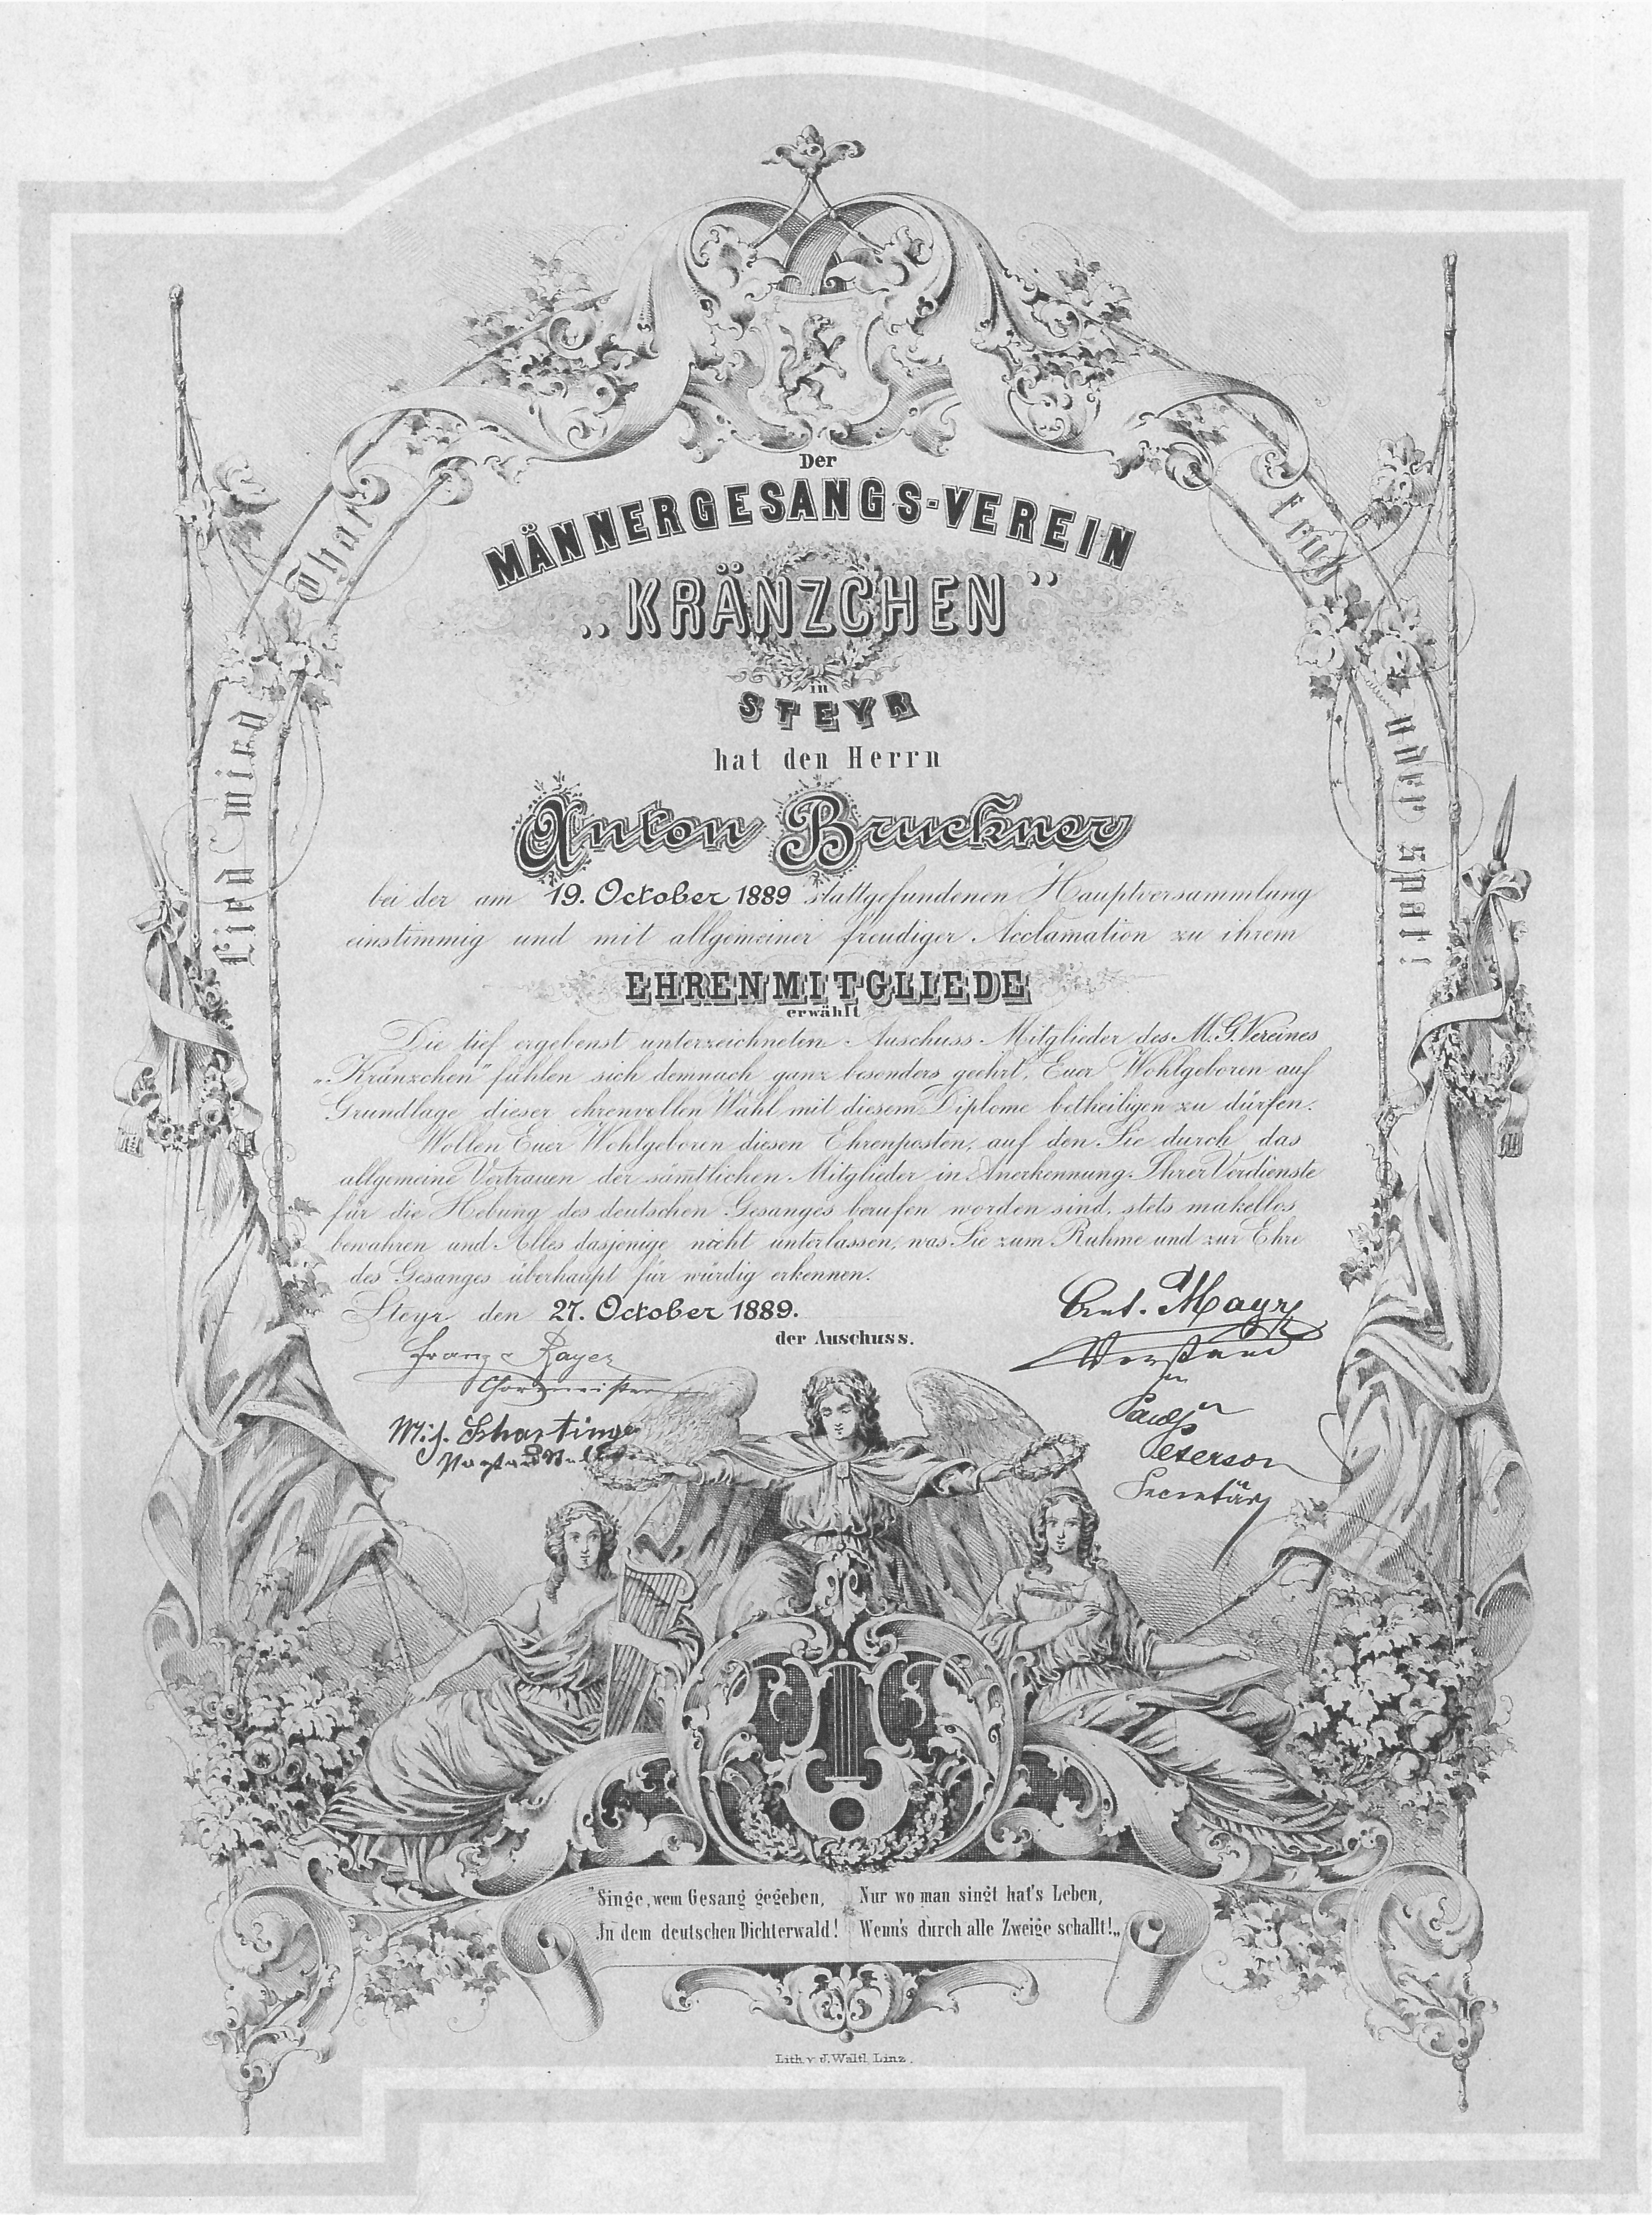 Der
MÄNNERGESANGS-VEREIN
„KRÄNZCHEN”
in
STEYR
hat den Herrn
Anton Bruckner
bei der am 19. October 1889 stattgefundenen Hauptversammlung
einstimmig und mit allgemeiner freudiger Acclamation zu ihrem
EHRENMITGLIEDE
erwählt
Die tief ergebenst unterzeichneten Auschuss-Mitglieder des M.G.Vereines
„Kränzchen” fühlen sich demnach ganz besonders geehrt, Euer Wohlgeboren auf
Grundlage dieser ehrenvollen Wahl mit diesem Diplome betheiligen zu dürfen.
Wollen Euer Wohlgeboren diesen Ehrenposten, auf den Sie durch das
allgemeine Vertrauen der sämtlichen Mitglieder in Anerkennung Ihrer Verdienste
für die Hebung des deutschen Gesanges berufen worden sind, stets makellos
bewahren und Alles dasjenige nicht unterlassen, was Sie zum Ruhme und zur Ehre
des Gesanges überhaupt für würdig erkennen.
Steyr den 27. October 1889.
der Auschuss.
Ant. Mayr
Vorstand
Franz Bayer
Chormeister
Peterson
Secretär
Lied wird That
früh oder spät!
"Singe, wem Gesang gegeben,
In dem deutschen Dichterwald!
Nur wo man singt hat's Leben,
Wenn's durch alle Zweige schallt!„
Lith. v. J. Waltl, Linz.